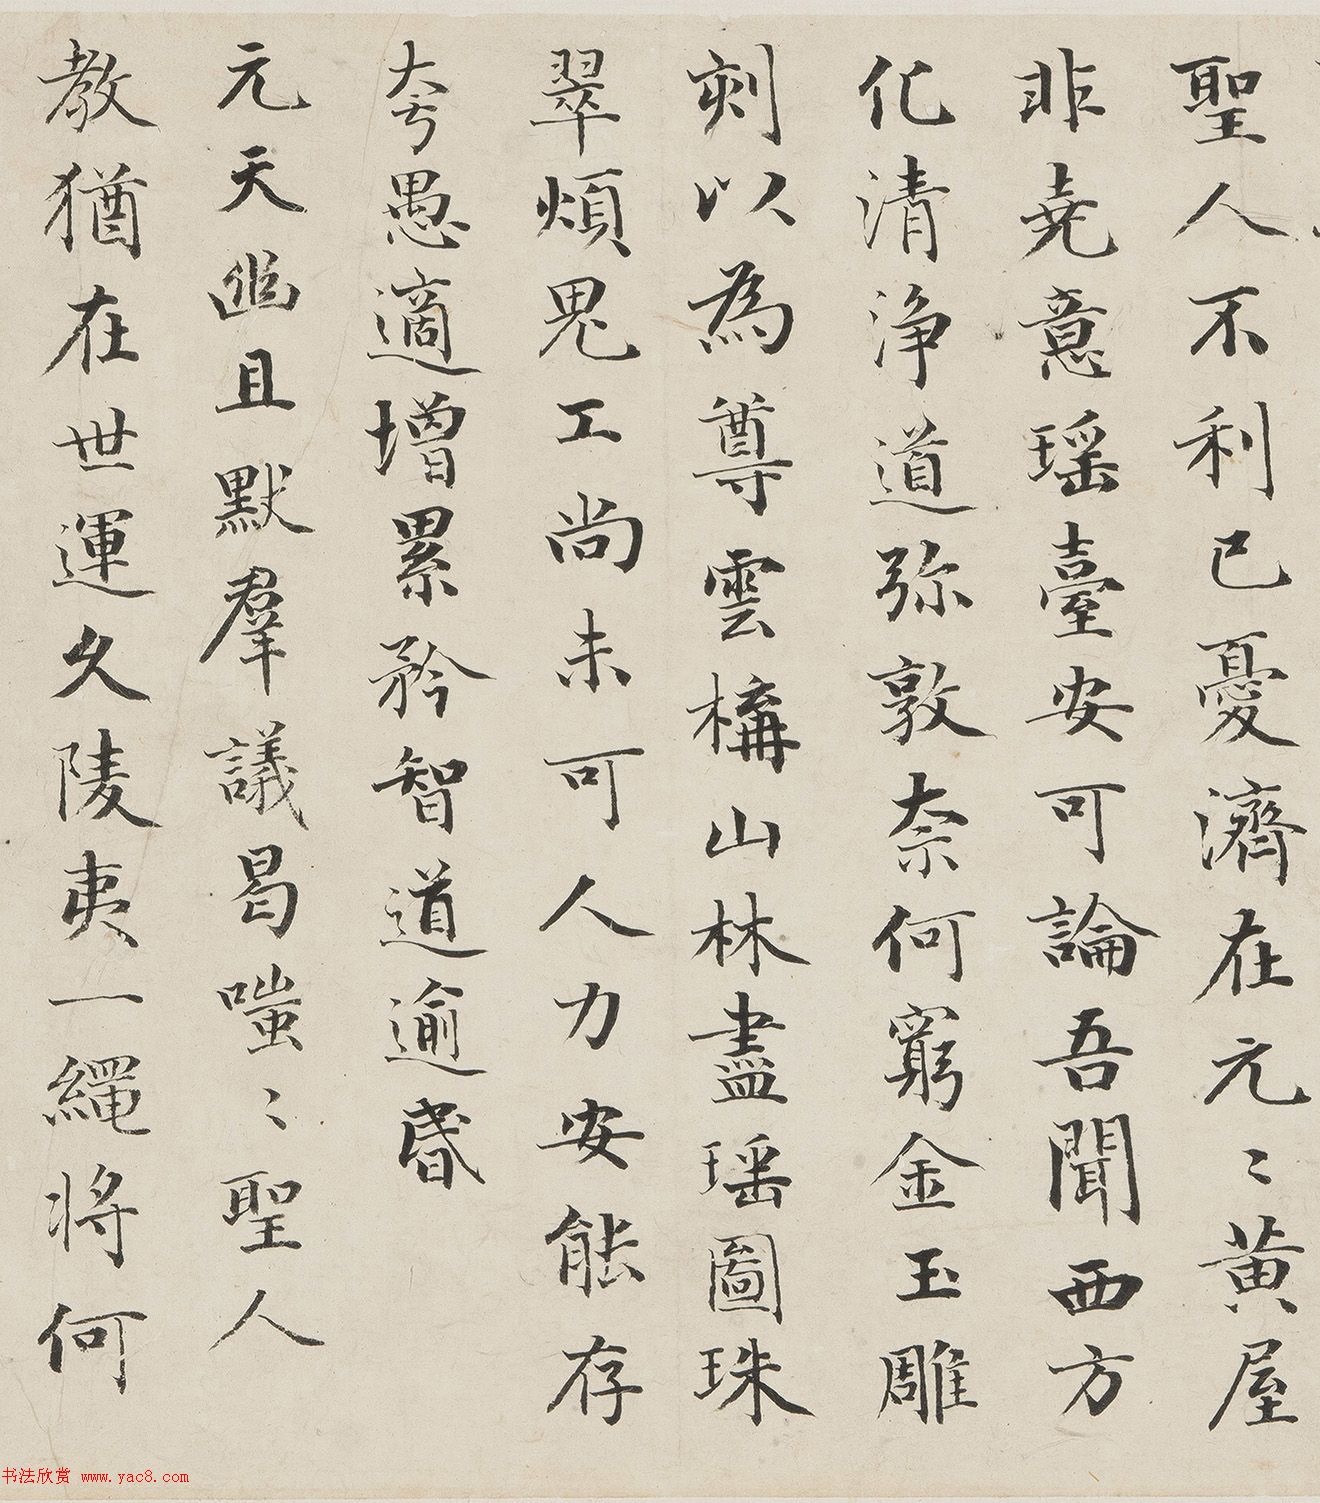 聖人不利己憂濟在元〻黃屋
非堯意瑶臺安可論吾聞西方
化清淨道弥敦奈何窮金玉雕
刻以為尊雲構山林盡瑶圖珠
翠煩鬼工尚未可人力安能存
夸愚適增累矜智道逾昏
元天幽且默羣議曷嗤〻聖人
教猶在世運久陵夷一繩將何
书法欣赏 www.yac8.com